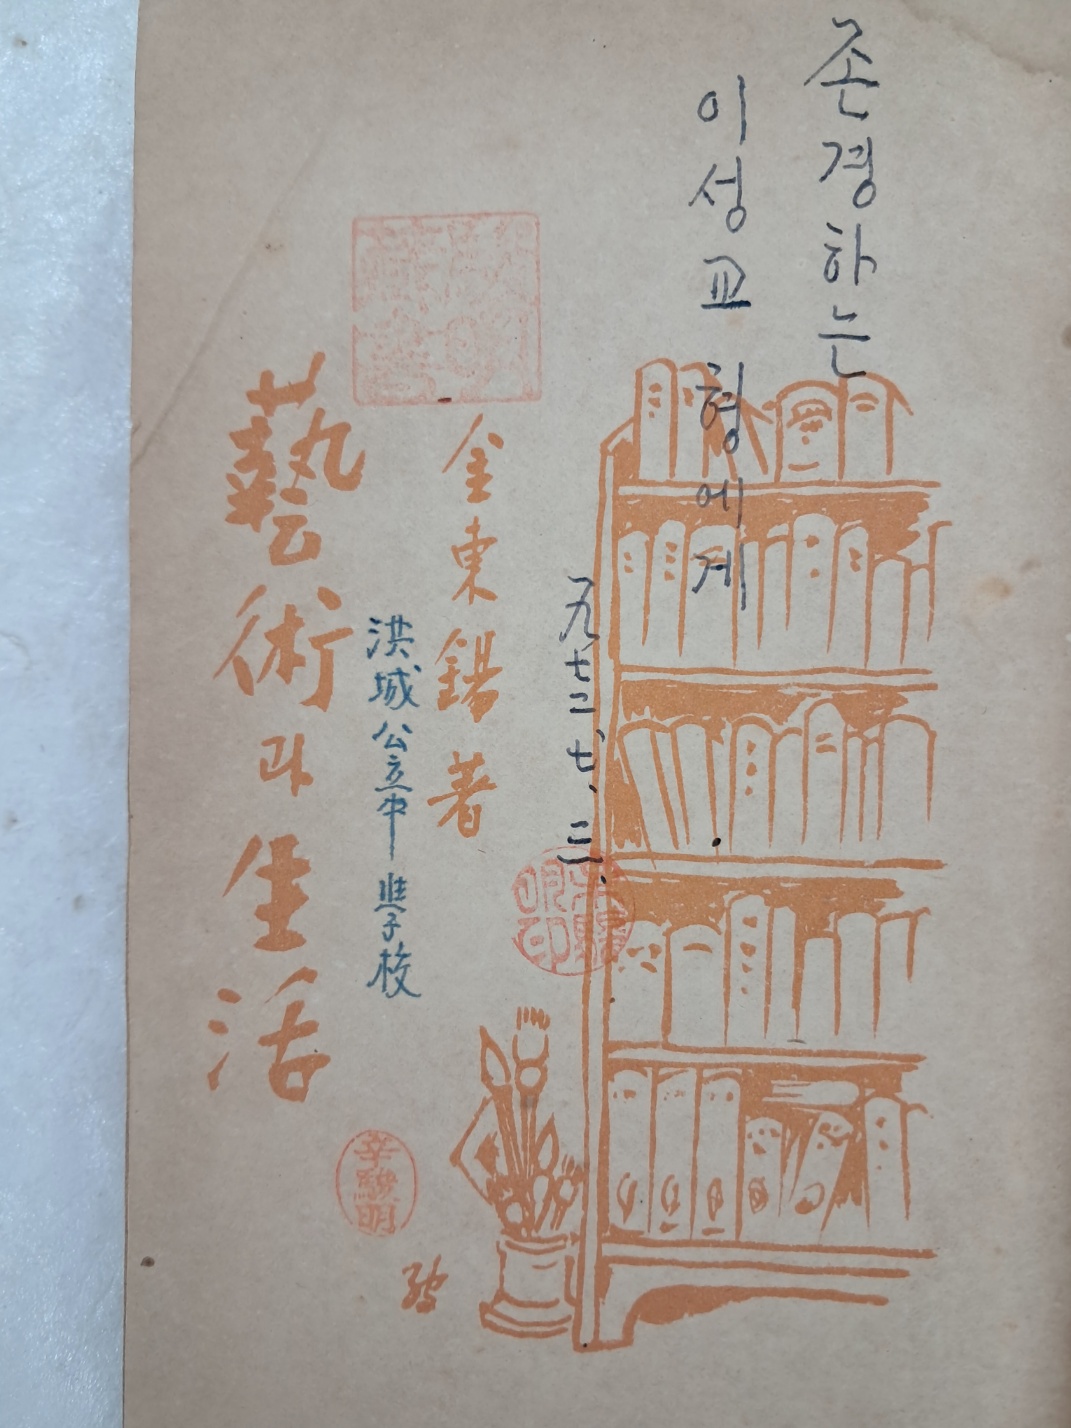 존경하는
이성교 형에게
九七二、七、三、
金東錫著
洪城公立中學校
藝術과 生活
辛驗明